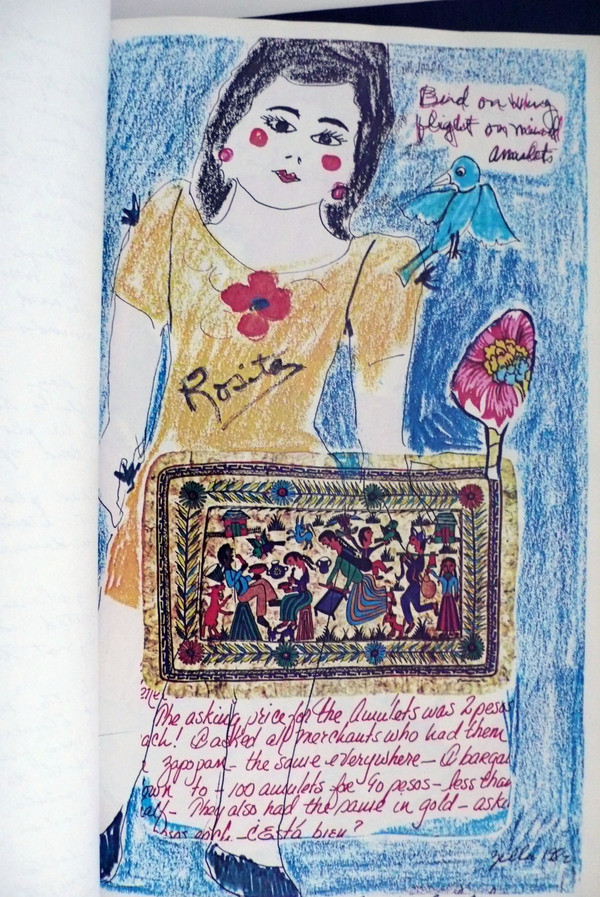 Bird on wing
flight on mind
amulets
Rosita
The asking price for the Amulets was 2 pesos
ach! I asked all merchants who had them
zapopan - the same everywhere - I bargai
own to - 100 amulets for 90 pesos - less than
alf - They also had the same in gold - aski
pesos each - ¿Está bien?